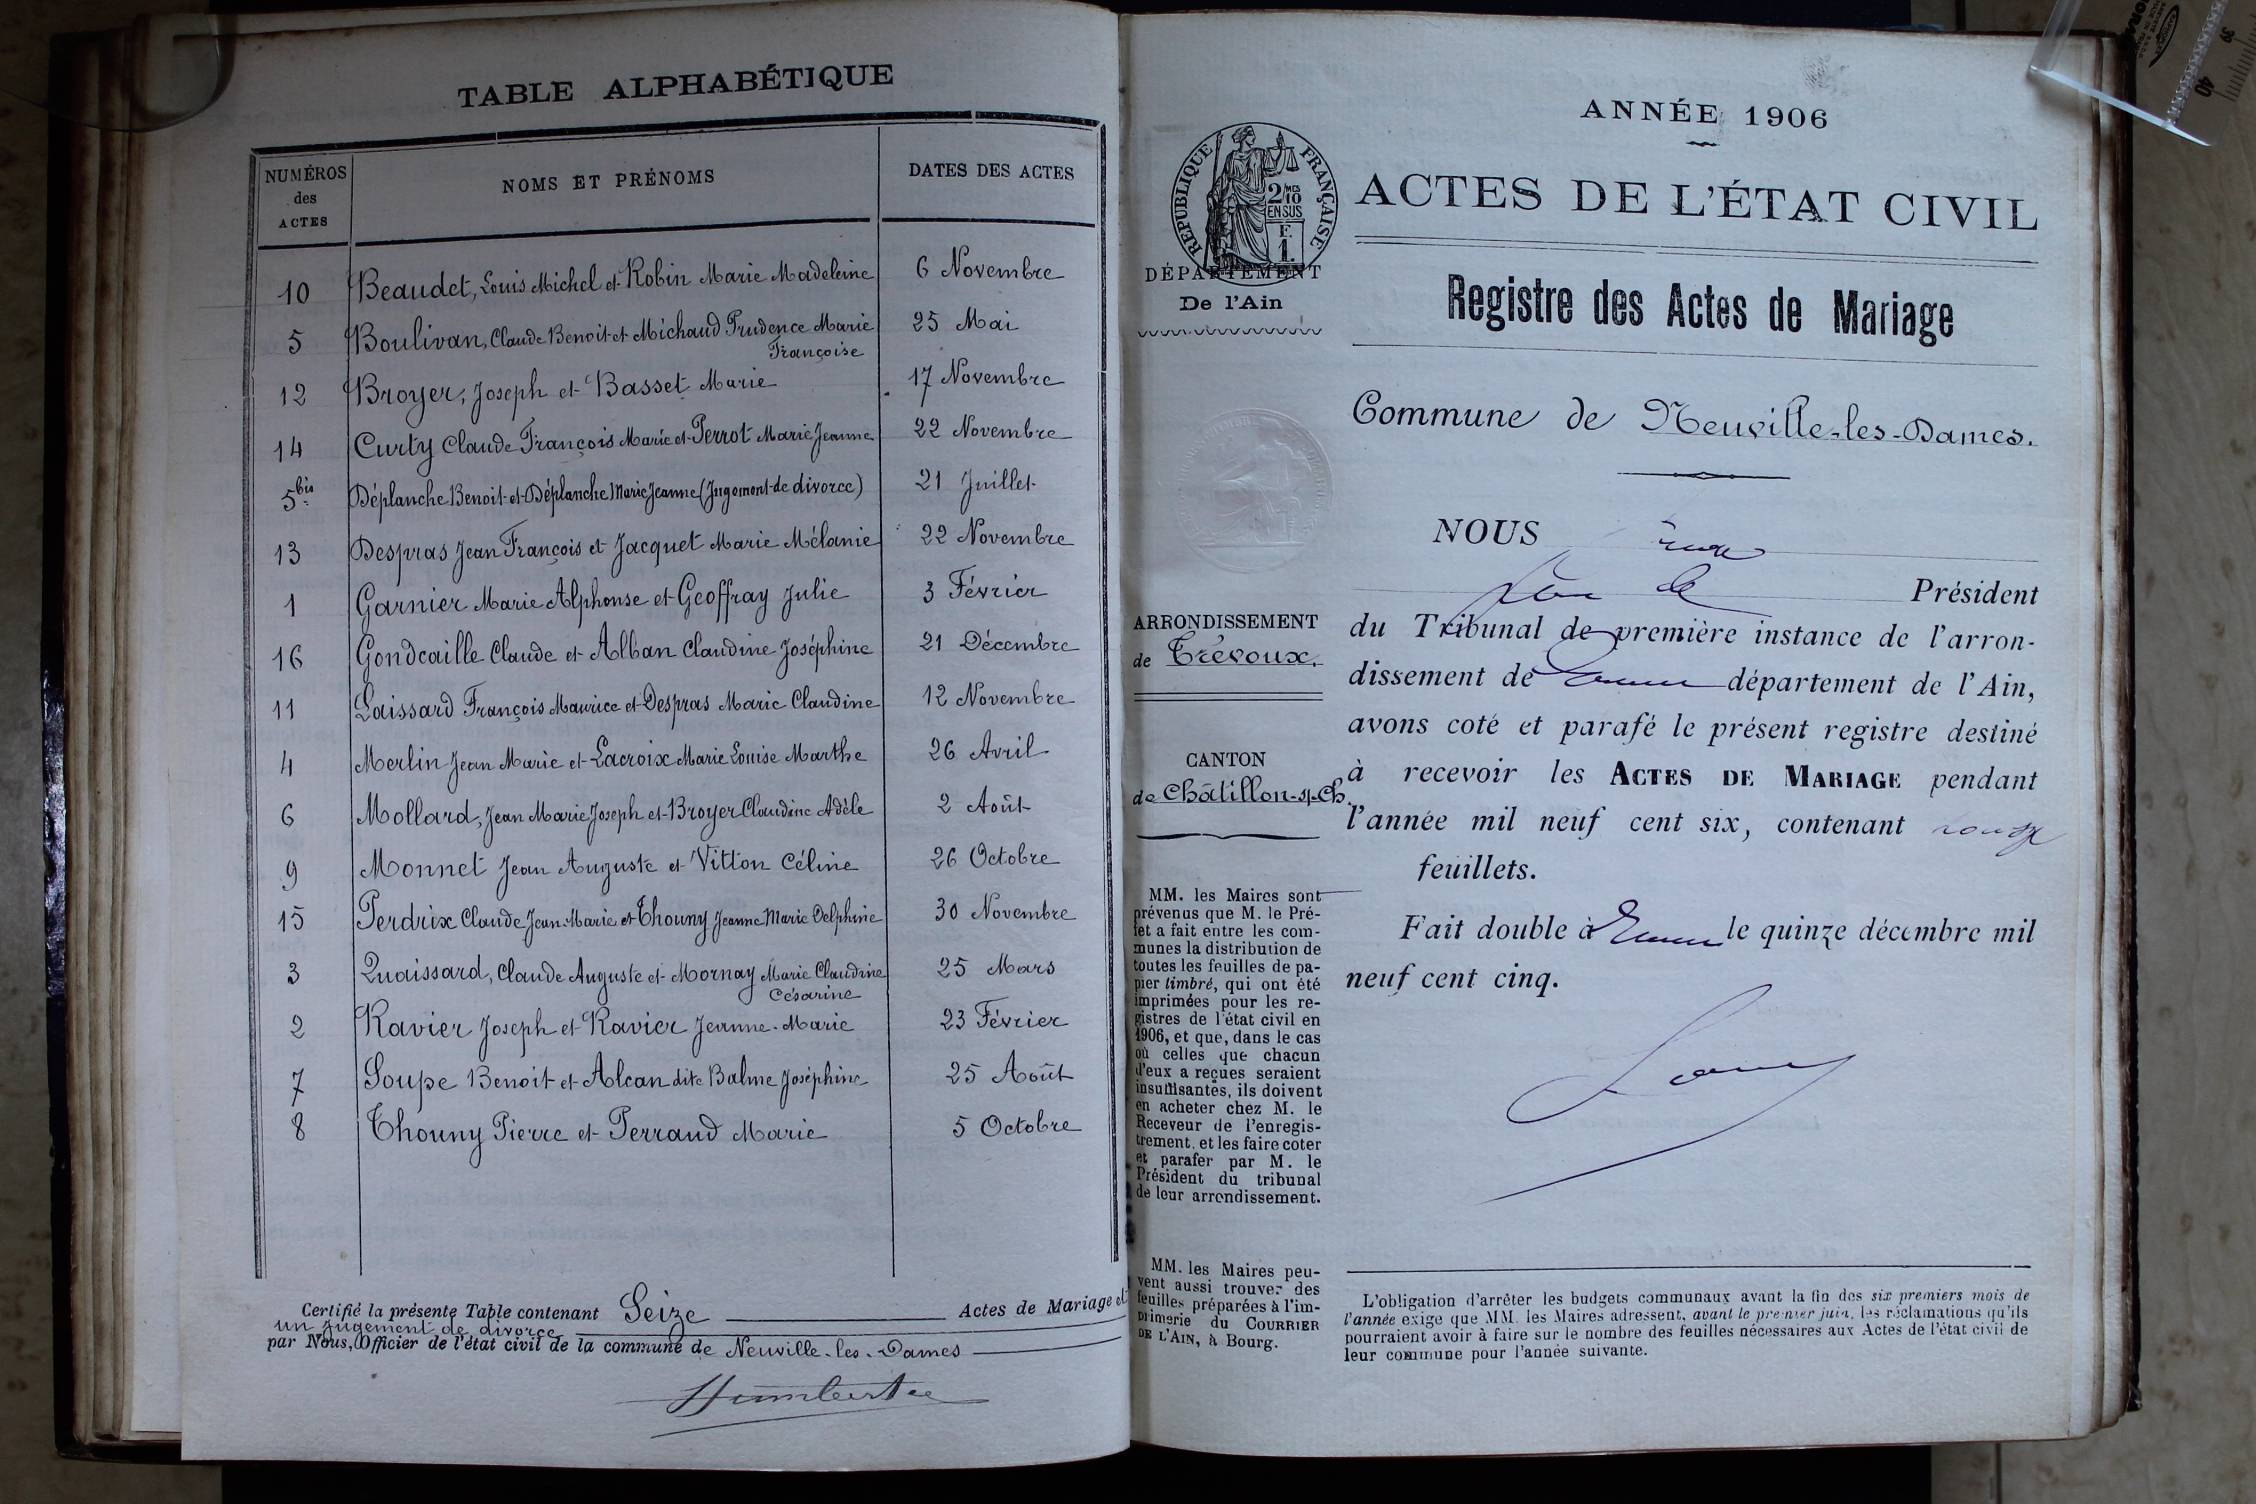 TABLE ALPHABÉTIQUE
NUMÉROS des ACTES NOMS ET PRÉNOMS DATES DES ACTES
10 Beaudet, Louis Michel et Robin Marie Madeleine 6 Novembre
5 Boulivan, Claude Benoit et Michaud Prudence Marie 25 Mai
Françoise
12 Broyer, Joseph et Basset Marie 17 Novembre
14 Curty Claude François Marie et Perrot Marie Jeanne 22 Novembre
5 bis Déplanche Benoit et Déplanche Marie Jeanne (Jugement de divorce) 21 Juillet
13 Despras Jean François et Jacquet Marie Mélanie 22 Novembre
1 Garnier Marie Alphonse et Geoffray Julie 3 Février
16 Gondcaille Claude et Alban Claudine Joséphine 21 Décembre
11 Laissard François Maurice et Despras Marie Claudine 12 Novembre
4 Merlin Jean Marie et Lacroix Marie Louise Marthe 26 Avril
6 Mollard, Jean Marie Joseph et Broyer Claudine Adèle 2 Août
9 Monnet Jean Auguste et Vitton Céline 26 Octobre
15 Perdrix Claude Jean Marie et Thouny Jeanne Marie Delphine 30 Novembre
3 Quaissard, Claude Auguste et Mornay Marie Claudine 25 Mars
Césarine
2 Ravier Joseph et Ravier Jeanne-Marie 23 Février
7 Soupe Benoit et Alcan dite Balme Joséphine 25 Août
8 Thouny Pierre et Perraud Marie 5 Octobre
Certifié la présente Table contenant Seize Actes de Mariage et
un jugement de divorce
par Nous, Officier de l'état civil de la commune de Neuville-les-Dames
ANNÉE 1906
RÉPUBLIQUE FRANÇAISE
2/10 MES
EN SUS
F.
1.
ACTES DE L'ÉTAT CIVIL
DÉPARTEMENT
De l'Ain
Registre des Actes de Mariage
Commune de Neuville-les-Dames.
ARRONDISSEMENT
de Trévoux.
CANTON
de Châtillon-s/-Ch.
MM. les Maires sont
prévenus que M. le Pré-
fet a fait entre les com-
munes la distribution de
toutes les feuilles de pa-
pier timbré, qui ont été
imprimées pour les re-
gistres de l'état civil en
1906, et que, dans le cas
où celles que chacun
d'eux a reçues seraient
insuffisantes, ils doivent
en acheter chez M. le
Receveur de l'enregis-
trement, et les faire coter
et parafer par M. le
Président du tribunal
de leur arrondissement.
MM. les Maires peu-
vent aussi trouver des
feuilles préparées à l'im-
primerie du COURRIER
DE L'AIN, à Bourg.
NOUS
Président
du Tribunal de première instance de l'arron-
dissement de département de l'Ain,
avons coté et parafé le présent registre destiné
à recevoir les ACTES DE MARIAGE pendant
l'année mil neuf cent six, contenant
feuillets.
Fait double à le quinze décembre mil
neuf cent cinq.
L'obligation d'arrêter les budgets communaux avant la fin des six premiers mois de
l'année exige que MM. les Maires adressent, avant le premier juin, les réclamations qu'ils
pourraient avoir à faire sur le nombre des feuilles nécessaires aux Actes de l'état civil de
leur commune pour l'année suivante.
39
40